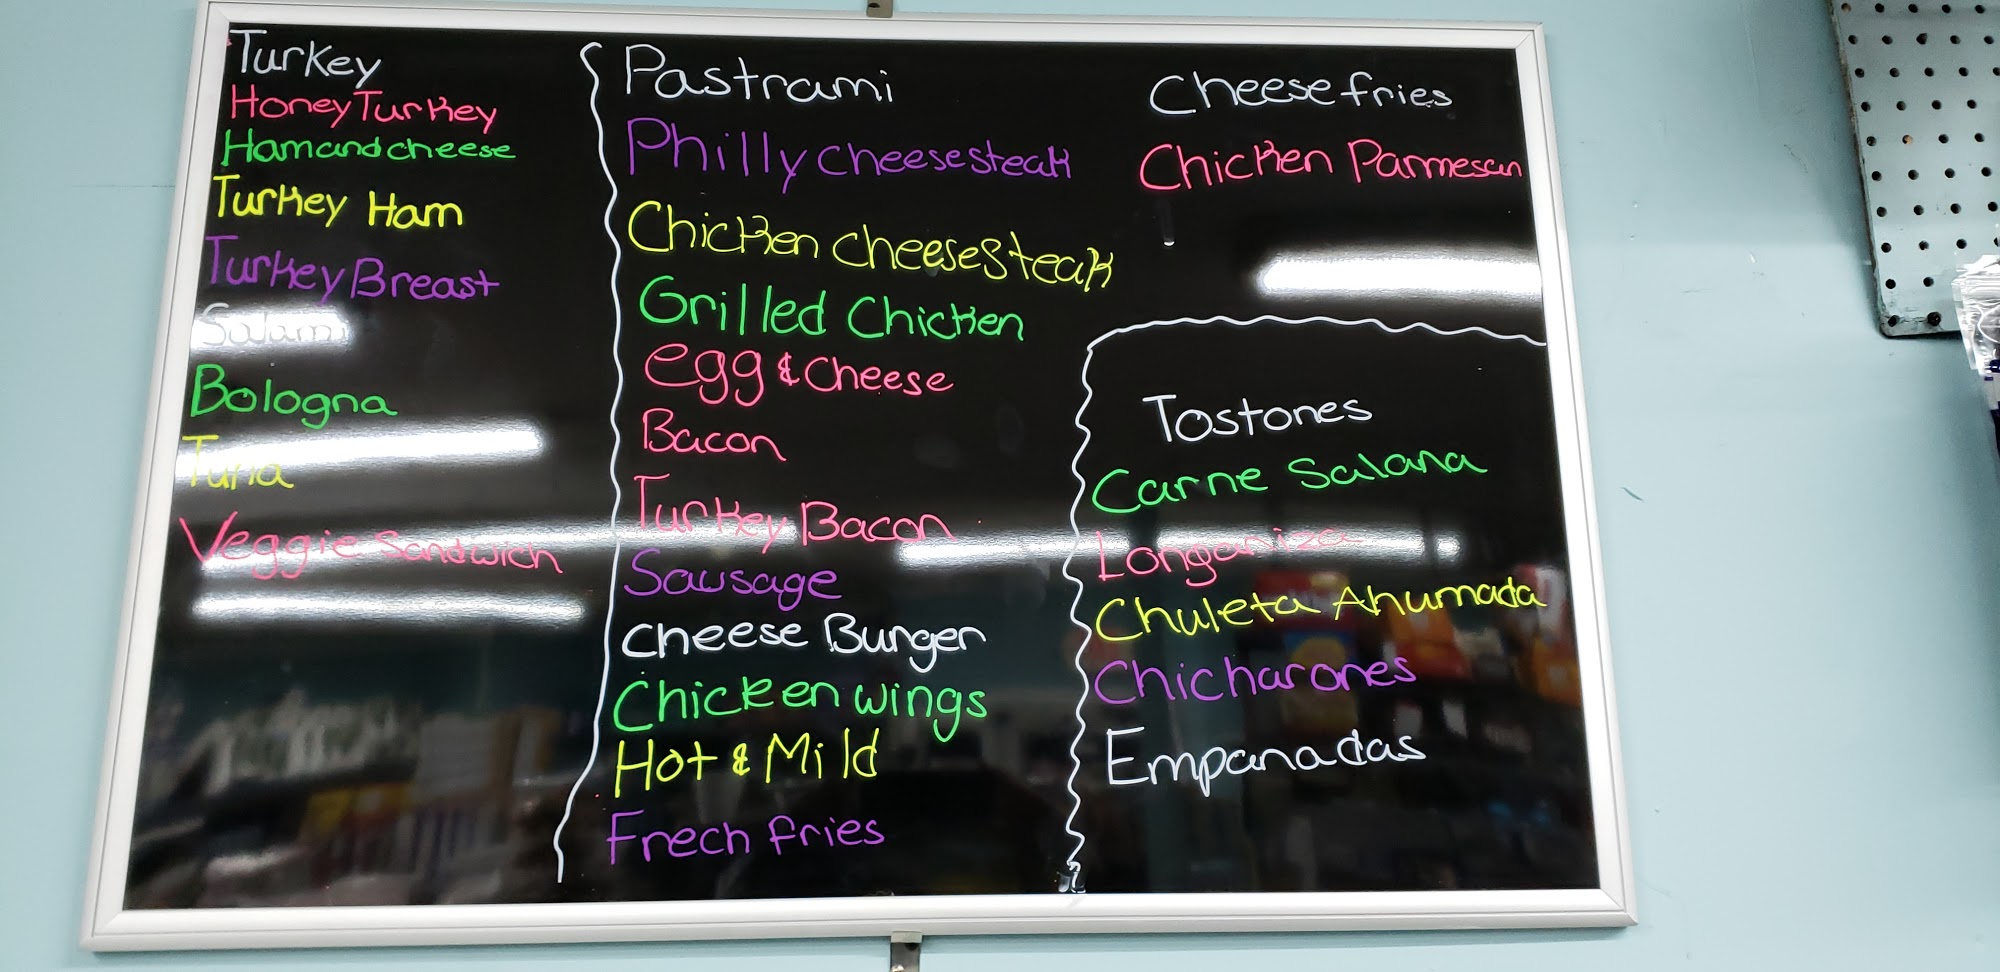 Turkey
Honey Turkey
Ham and cheese
Turkey Ham
Turkey Breast
Salami
Bologna
Tuna
Veggie Sandwich
Pastrami
Philly cheesesteak
Chicken cheesesteak
Grilled Chicken
egg & Cheese
Bacon
Turkey Bacon
Sausage
Cheese Burger
Chicken wings
Hot & Mild
Frech fries
Cheese fries
Chicken Parmesan
Tostones
Carne Salana
Longaniza
Chuleta Ahumada
Chicharones
Empanadas